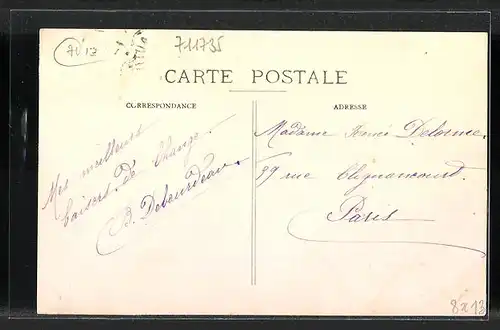 70 12
711735
CARTE POSTALE
CORRESPONDANCE
ADRESSE
Mes meilleurs
baisers. de
Madame Delorme.
99 rue Clignancourt.
Paris
8x13